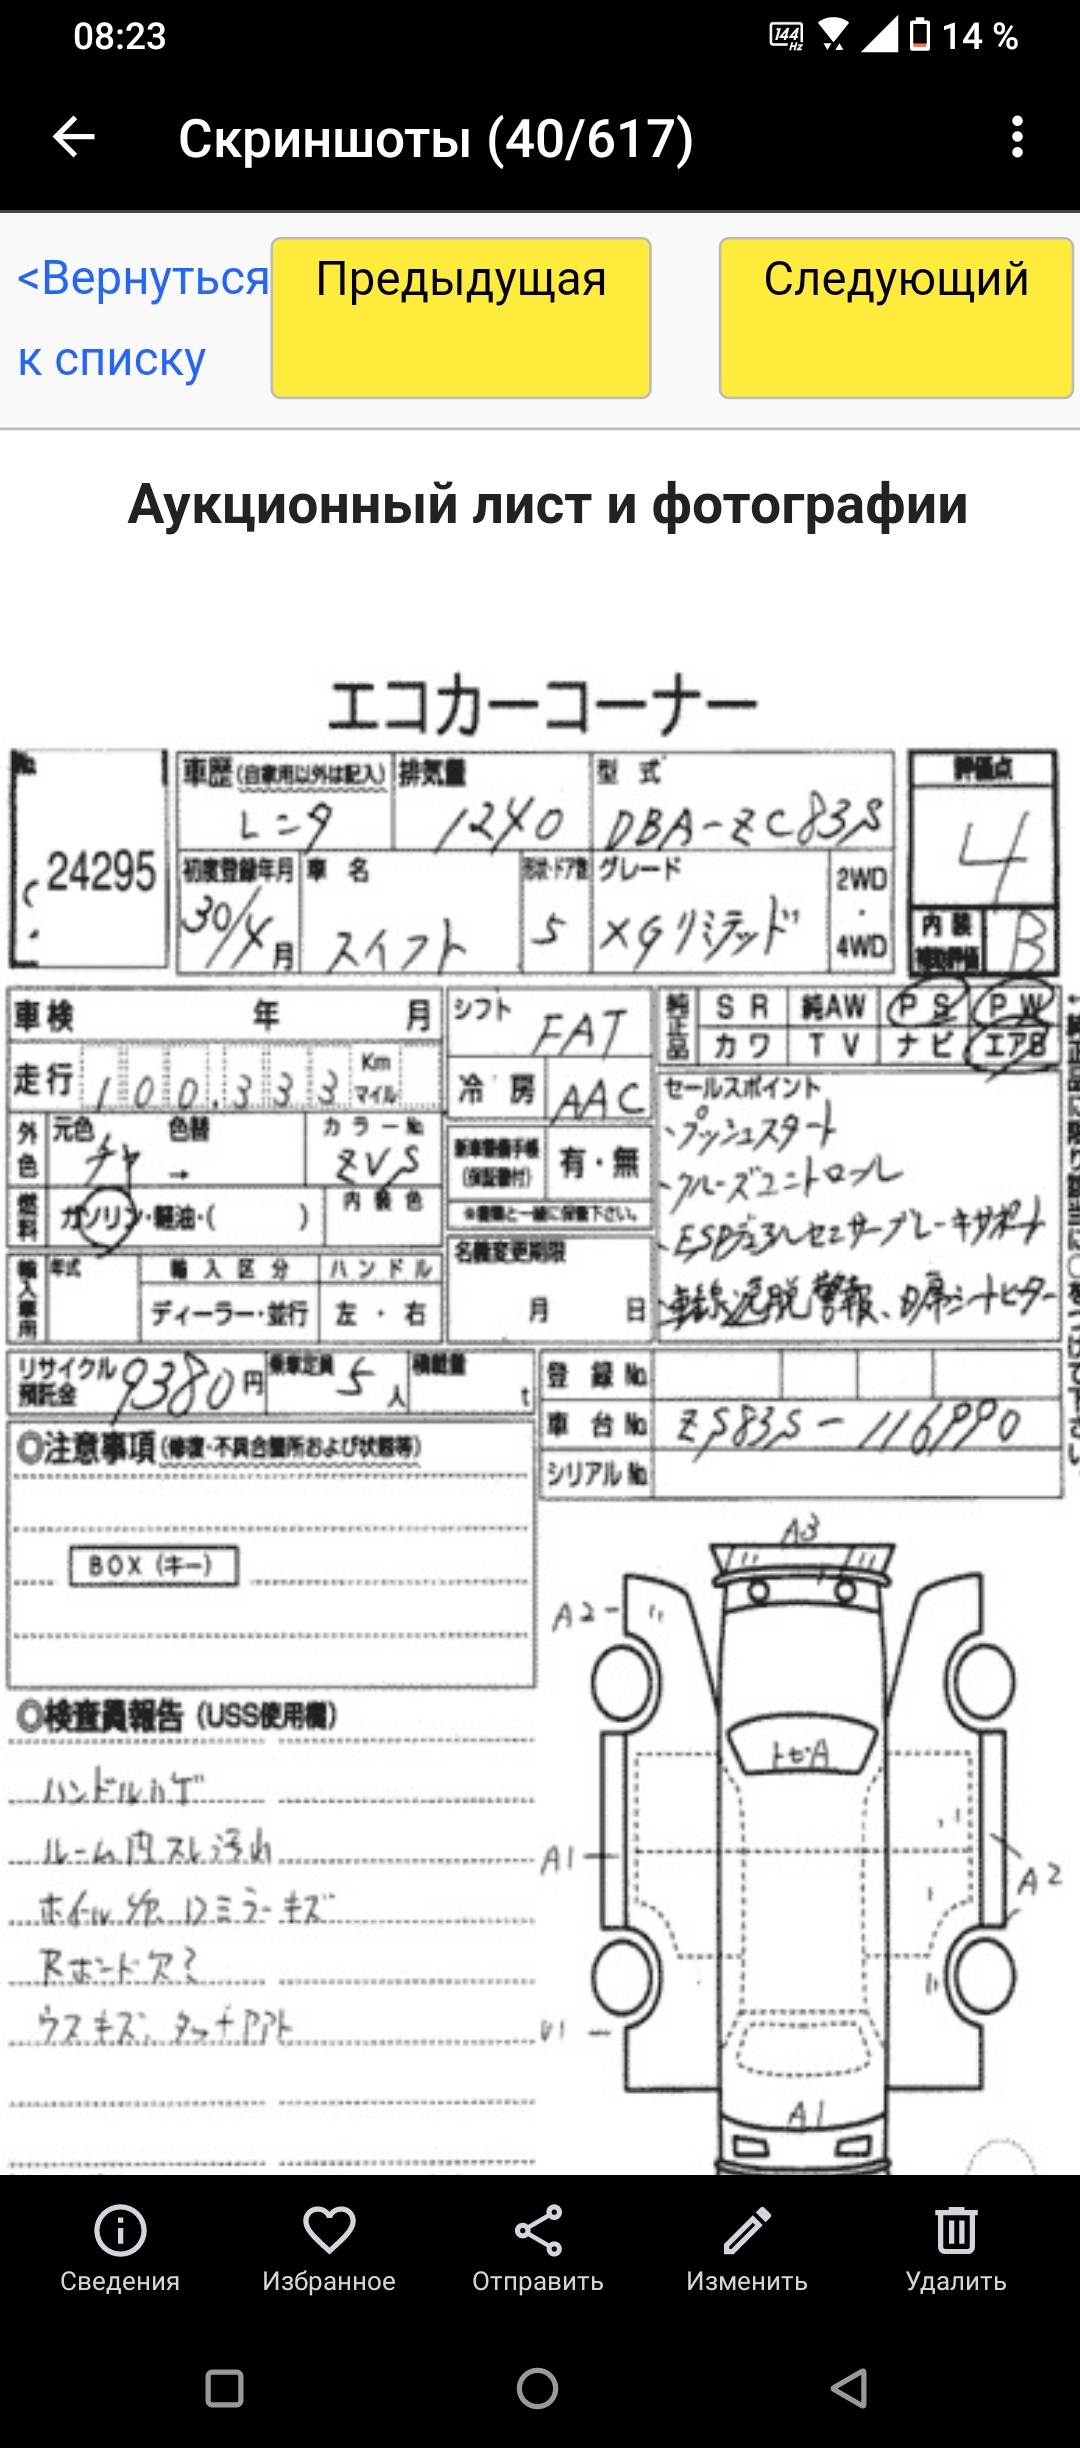 08:23
144 Hz
14 %
Скриншоты (40/617)
<Вернуться к списку
Предыдущая
Следующий
Аукционный лист и фотографии
エコカーコーナー
No.
24295
車歴 (自家用以外は記入)
レンタ
排気量
1240
型式
DBA-ZC83S
評価点
4
初度登録年月
30/4月
車名
スイフト
形状・ドア数
5
グレード
XGリミテッド
2WD
・
4WD
内装
補助評価
B
車検 年 月
シフト
FAT
純正品
SR 純AW PS PW
カワ TV ナビ エアB
走行
100,333
Km
マイル
冷房
AAC
セールスポイント
・プッシュスタート
・クルーズコントロール
外色
元色
チャ
色替
→
カラーNo.
ZVS
新車整備手帳
(保証書付)
有・無
※書類と一緒に保管下さい。
燃料
ガソリン・軽油・( )
内装色
名義変更期限
月 日
輸入車用
年式
輸入区分
ハンドル
ディーラー・並行
左・右
リサイクル預託金
9380円
乗車定員
5人
積載量
t
登録No.
車台No.
ZS83S-116990
シリアルNo.
◎注意事項 (修復・不具合箇所および状態等)
BOX (キー)
◎検査員報告 (USS使用欄)
ハンドルハゲ
ルーム内スレ汚れ
キズ
ウスキズ、タッチアト
A3
A2
トビA
A1
A2
U1
A1
Сведения
Избранное
Отправить
Изменить
Удалить